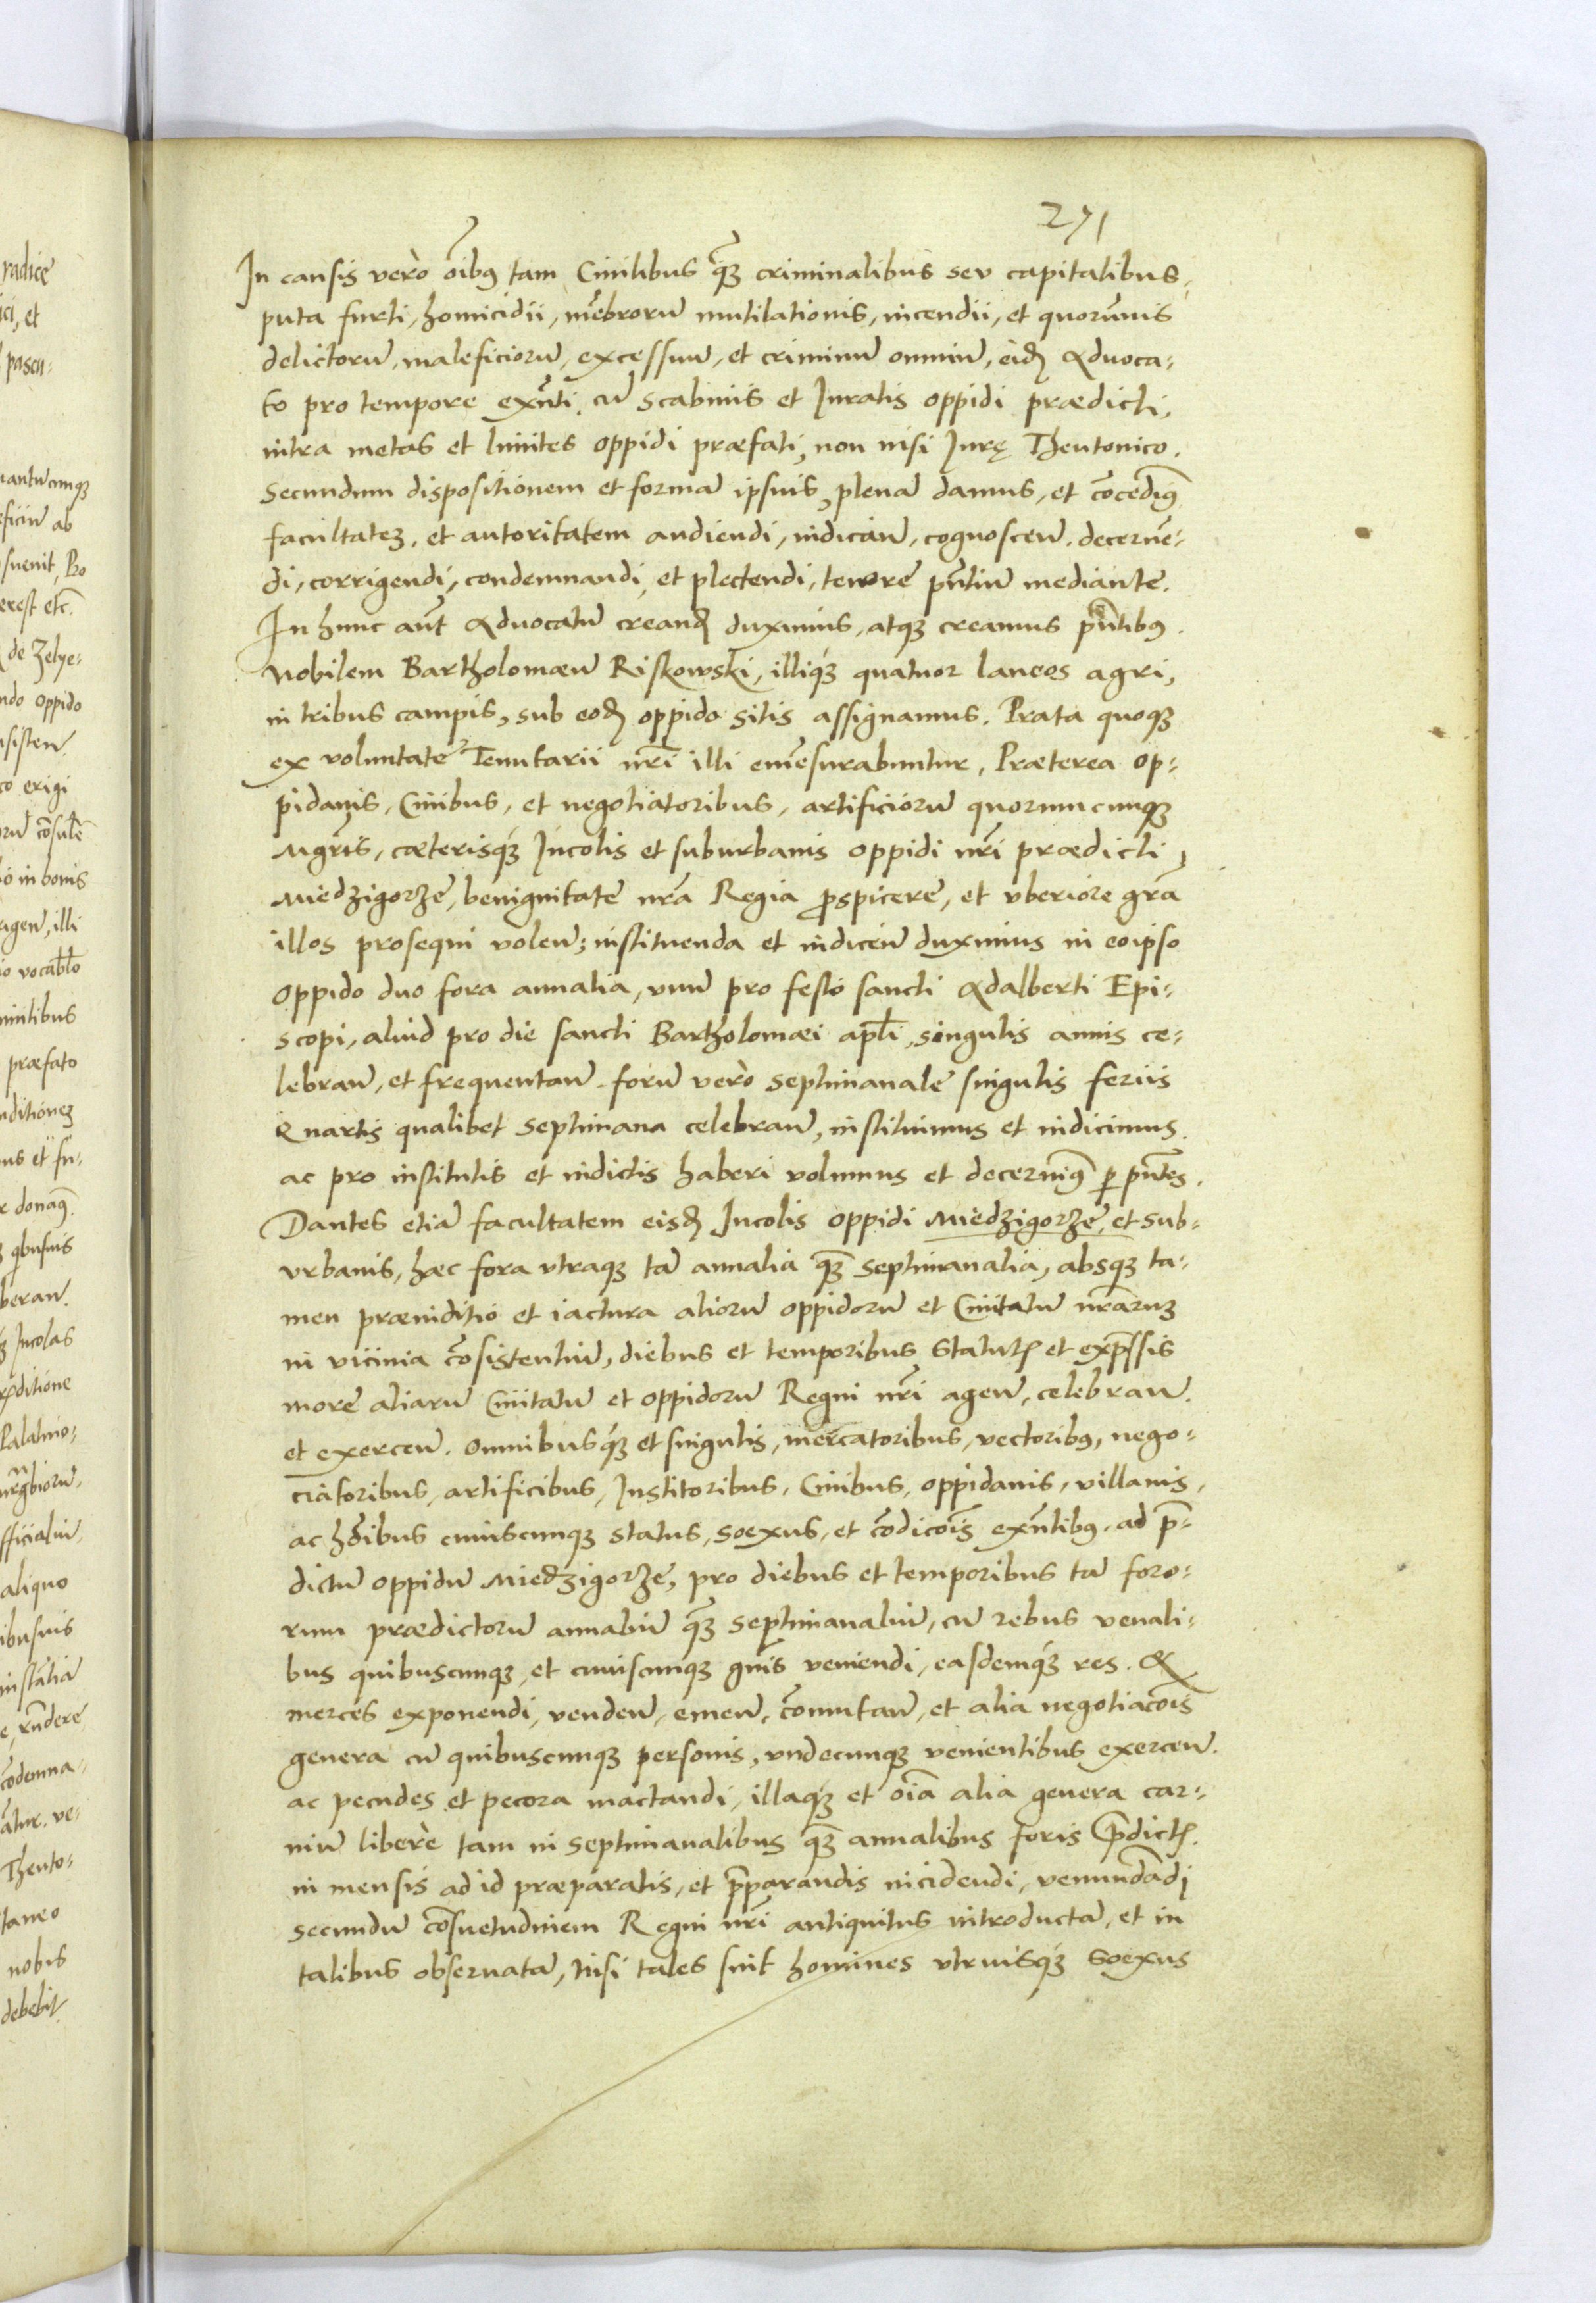 271
In causis vero oībus tam Civilibus q̄ȝ criminalibus seu capitalibus,
puta furti, homicidii, mēbrorū mutilationis, incendii, et quorūvis
delictorū, maleficiorū, excessuū, et criminū omniū, eidē Advoca-
to pro tempore exn̄ti, cū scabinis et Iuratis oppidi prædicti,
intra metas et limites oppidi præfati, non nisi Iurę Theutonico.
Secundum dispositionem et formā ipsius, plenā damus, et cōcedimꝰ
facultateȝ, et autoritatem audiendi, iudicān̄, cognoscen̄, decernē-
di, corrigendi, condemnandi, et plectendi, tenore pn̄tiū mediante.
In hunc aūt Advocatū creand̄ duximus, atqȝ creamus pn̄tibꝰ
Nobilem Bartholomæū Riskowski, illiqȝ quatuor laneos agri,
in tribus campis, sub eodē oppido sitis assignamus. Prata quoqȝ
ex voluntate Tenutarii nr̄i illi emēsurabuntur. Præterea op-
pidanis, Civibus, et negotiatoribus, artificiorū quorumcunqȝ
Mgr̄is, cæterisqȝ Incolis et suburbanis oppidi nr̄i prædicti,
Miedzigorze, benignitate nr̄a Regia ꝓspicere, et uberiore gr̄a
illos prosequi volen̄; instituenda et indicen̄ duximus in eo ipso
Oppido duo fora annalia, unū pro festo sancti Adalberti Epi-
scopi, aliud pro die sancti Bartholomæi apl̄i, singulis annis ce-
lebran̄, et frequentan̄. forū vero septimanale singulis feriis
Quartis qualibet septimana celebran̄, instituimus et indicimus.
ac pro institutis et indictis haberi volumus et decernimꝰ ꝑ pn̄tes.
Dantes etiā facultatem eisdē Incolis oppidi Miedzigorze, et sub-
urbanis, hæc fora utraqȝ tā annalia q̄ȝ septimanalia, absqȝ ta-
men præiuditio et iactura aliorū oppidorū et Civitatū nr̄aruȝ
in vicinia cōsistentiū, diebus et temporibus statutꝭ et exp̄ssis
more aliarū Civitatū et oppidorū Regni nr̄i agen̄, celebran̄.
et exercen̄. Omnibusqȝ et singulis, mercatoribus, vectoribꝰ, nego-
ciatoribus, artificibus, Institoribus, Civibus, oppidanis, villanis,
ac hōibus cuiuscunqȝ status, soexus, et cōdicōis exn̄tibꝰ, ad p̄-
dictū oppidū Miedzigorze, pro diebus et temporibus tā foro-
rum prædictorū annaliū q̄ȝ septimanaliū, cū rebus venali-
bus quibuscunqȝ, et cuiuscunqȝ gn̄is veniendi, easdemqȝ res. &
merces exponendi, venden̄, emen̄, cōmutan̄, et alia negotiacōis
genera cū quibuscunqȝ personis, undecunqȝ venientibus exercen̄.
ac pecudes et pecora mactandi, illaqȝ et oīa alia genera car-
niū libere tam in septimanalibus q̄ȝ annalibus foris p̄dictꝭ.
in mensis ad id præparatis, et p̄parandis incidendi, venundādi
secundū cōsuetudinem Regni nr̄i antiquitus introductā, et in
talibus observatā, Nisi tales sint homines utriusqȝ soexus